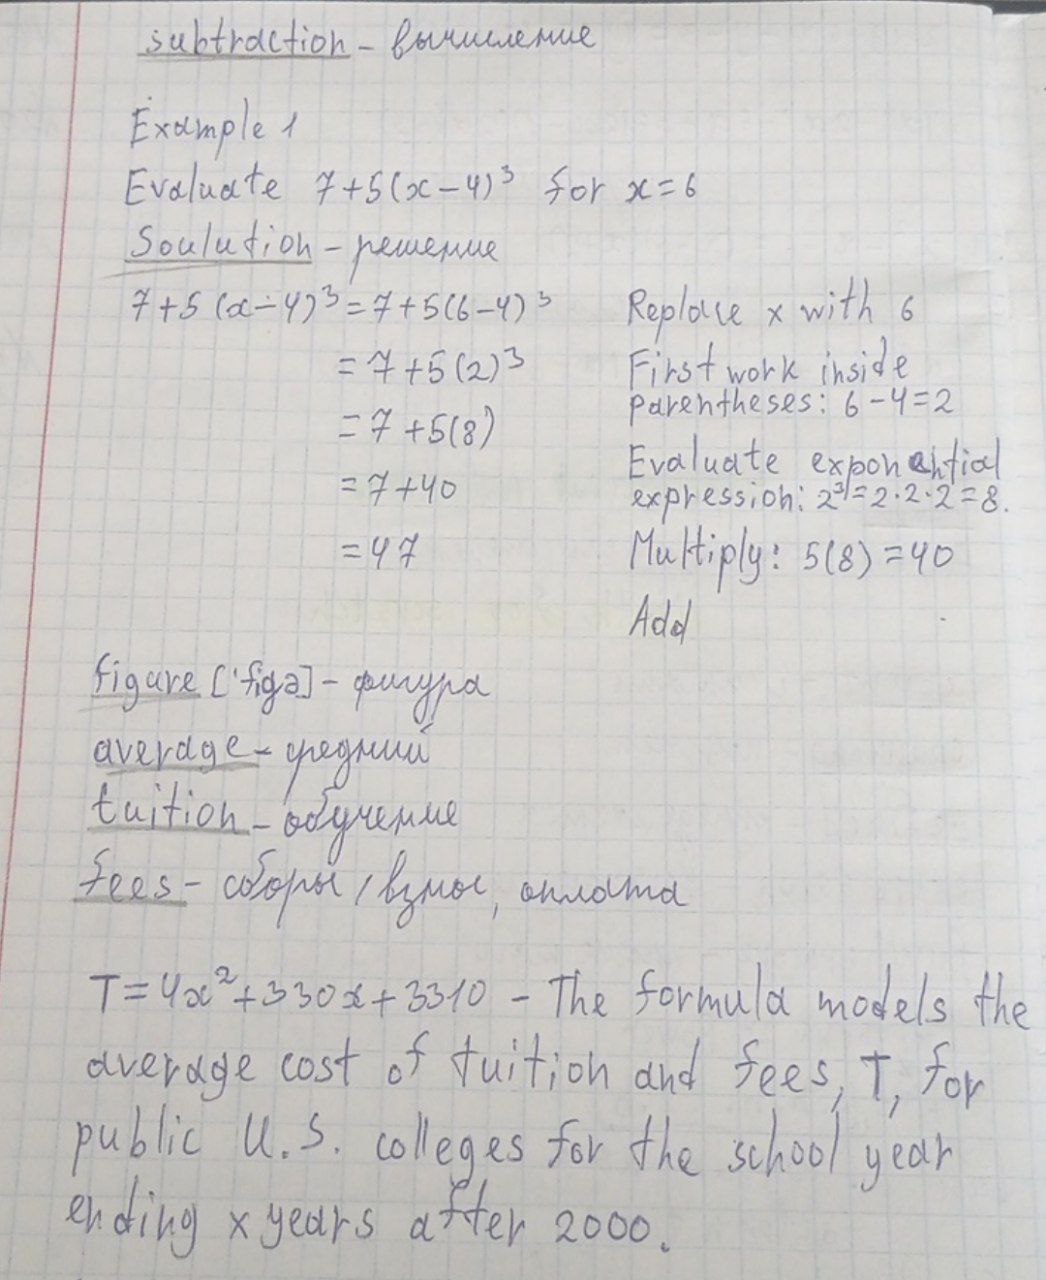 subtraction - вычисление
Example 1
Evaluate 7+5(x-4)³ for x=6
Soulution - решение
7+5(x-4)³=7+5(6-4)³ Replace x with 6
=7+5(2)³ First work inside
parentheses: 6-4=2
=7+5(8)
Evaluate exponential
=7+40 expression: 2³=2·2·2=8.
=47 Multiply: 5(8)=40
Add
figure ['figə] - фигура
average - средний
tuition - обучение
fees - сборы / взнос, оплата
T=4x²+330x+3310 - The formula models the
average cost of tuition and fees, T, for
public U.S. colleges for the school year
ending x years after 2000.